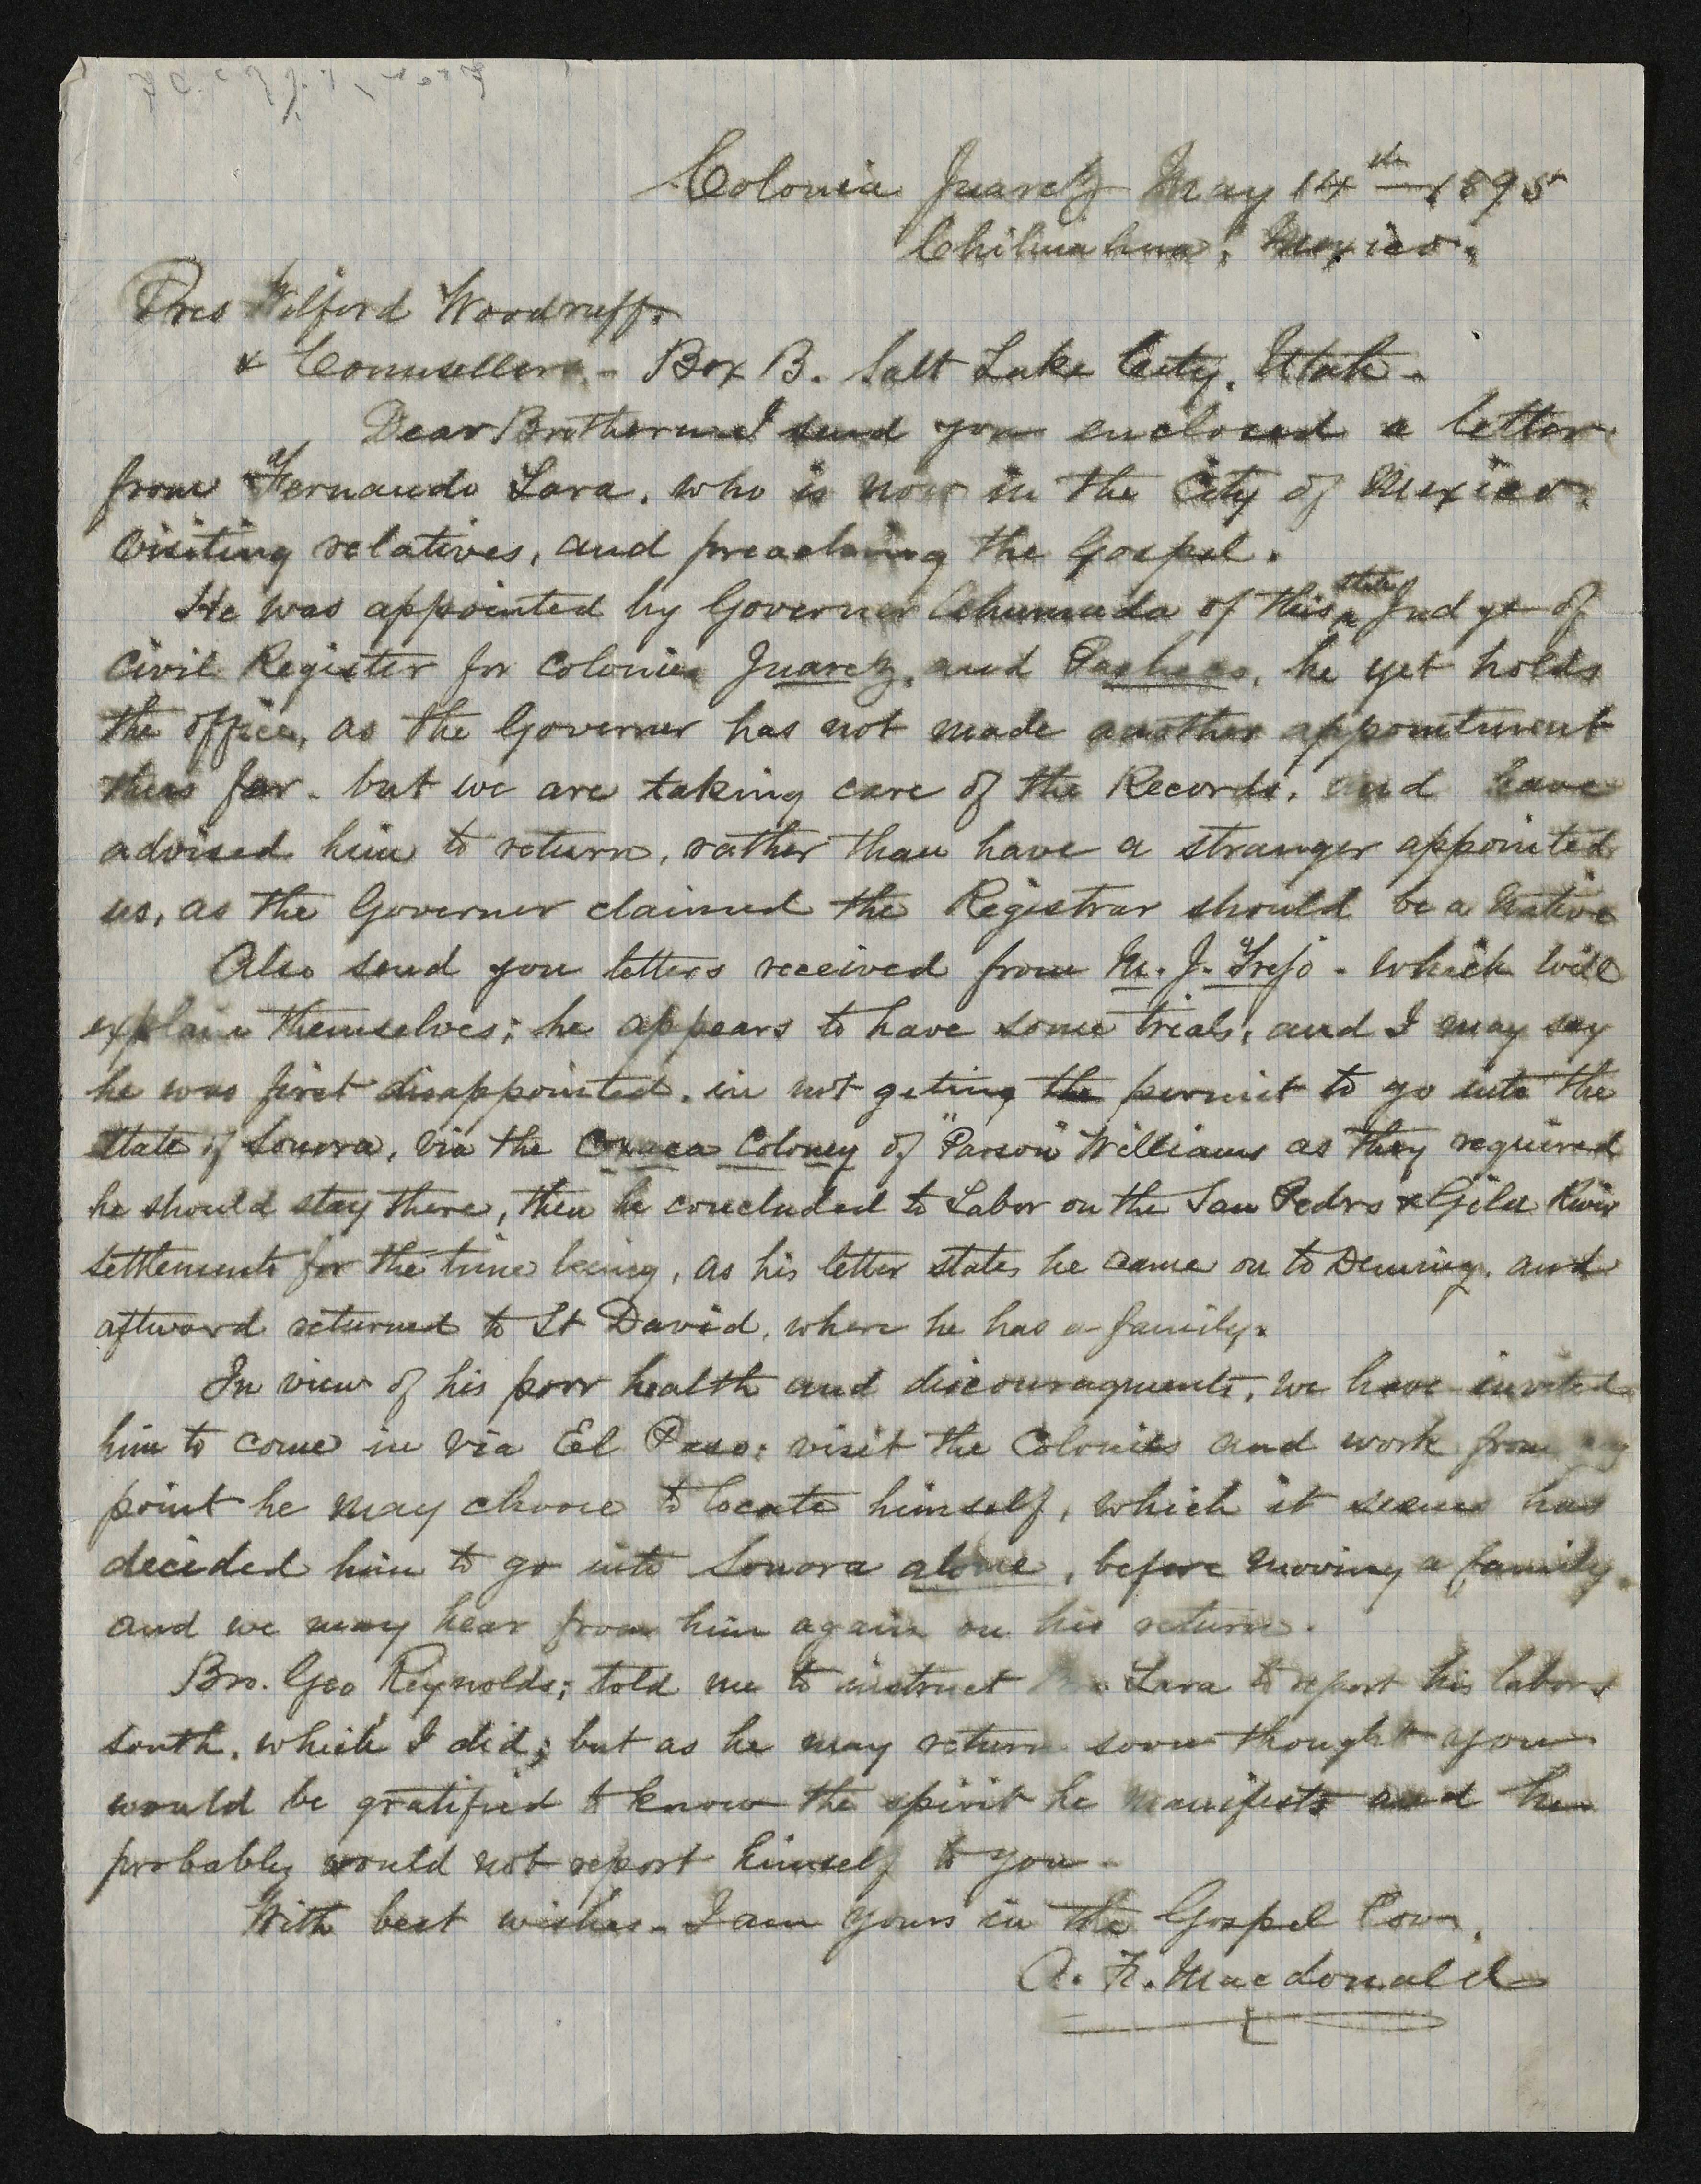 Colonia Juarez May 14th 1895
Chihuahua, Mexico.
Pres Wilford Woodruff.
& Counsellors - Box B. Salt Lake City, Utah -
Dear Brethren I send you enclosed a letter
from Fernando Lara, who is now in the City of Mexico,
visiting relatives, and preaching the Gospel.
He was appointed by Governer Ahumada of this state Judge of
Civil Register for Colonies Juarez, and Pacheco, he yet holds
the office, as the Governer has not made another appointment
thus far - but we are taking care of the Records, and have
advised him to return, rather than have a stranger appointed
us, as the Governer claimed the Registrar should be a Native
Also send you letters received from M. J. Trejo - which will
explain themselves; he appears to have some trials, and I may say
he was first disappointed, in not geting the permit to go into the
State of Sonora, via the Oxaca Colony of "Parson" Williams as they required
he should stay there, then he concluded to Labor on the San Pedro & Gila River
settlements for the time being, as his letter states he came on to Deming, and
aftward returned to St David, where he has a family.
In view of his poor health and discouragments, we have invited
him to come in via El Paso; visit the Colonies and work from any
point he may choose to locate himself, which it seems has
decided him to go into Sonora alone, before moving a family,
and we may hear from him again on his return.
Bro. Geo Reynolds; told me to instruct Lara to report his labors
south, which I did; but as he may return soon thought you
would be gratified to know the spirit he manifests and he
probably would not report himself to you -
With best wishes - I am yours in the Gospel Cov.
A. F. Macdonald